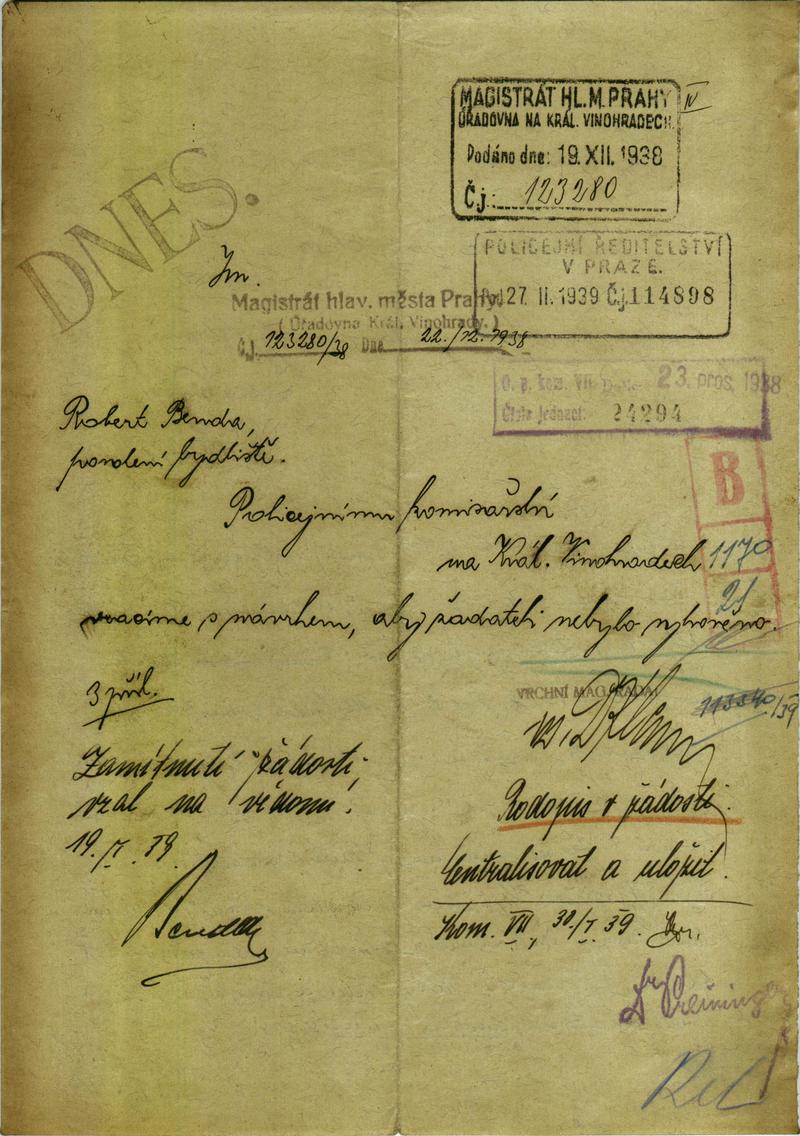 MAGISTRÁT HL. M. PRAHY
ÚŘADOVNA NA KRÁL. VINOHRADECH.
IV
Podáno dne: 19. XII. 1938
Č.j.: 123280
DNES.
POLICEJNÍ ŘEDITELSTVÍ
V PRAZE.
27 II. 1939 Čj. 114898
Magistrát hlav. města Prahy
( Úřadovna Král. Vinohrady. )
Č.J. 123280/38 Dne 22./12. 1938
O. p. kom. VII. Došlo 23. pros. 1938
Číslo jednací: 24294
Robert Benda,
povolení bydliště.
B
Policejnímu komisařství
na Král. Vinohradech
1170
21
vracíme s návrhem, aby žadateli nebylo vyhověno.
3 příl.
VRCHNÍ MAG. RADA:
113540/39
Zamítnutí žádosti
vzal na vědomí.
19./I. 39
Benda
v žádosti.
Centralisovat a uložit.
Kom. VII, 30/I. 39.